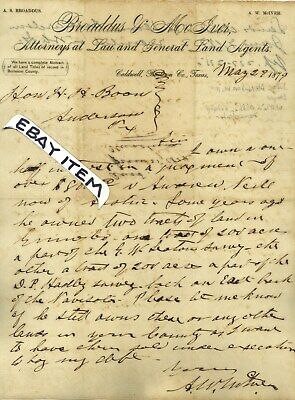 A. S. BROADDUS. A. W. McIVER.
Broaddus & McIver,
Attorneys at Law and General Land Agents.
We have a complete Abstract of all Land Titles of record in Burleson County.
Caldwell, Burleson Co., Texas, May 29 1879
Hon H. H. Boon
Anderson
Tx
Sir I own a one
half in a judgment of
over $ v Andrew
now of Some years ago
he owned two tracts of land in
Grimes Co one tract of 200 acres
a part of the survey the
other a tract of 200 acres a part of the
D. P. survey both on East bank
of the Navisota. Please let me know
if he still owns these or any other
lands in your County as I want
to have them sold under execution
to pay my debt.
Yours
A. W. McIver
EBAY ITEM